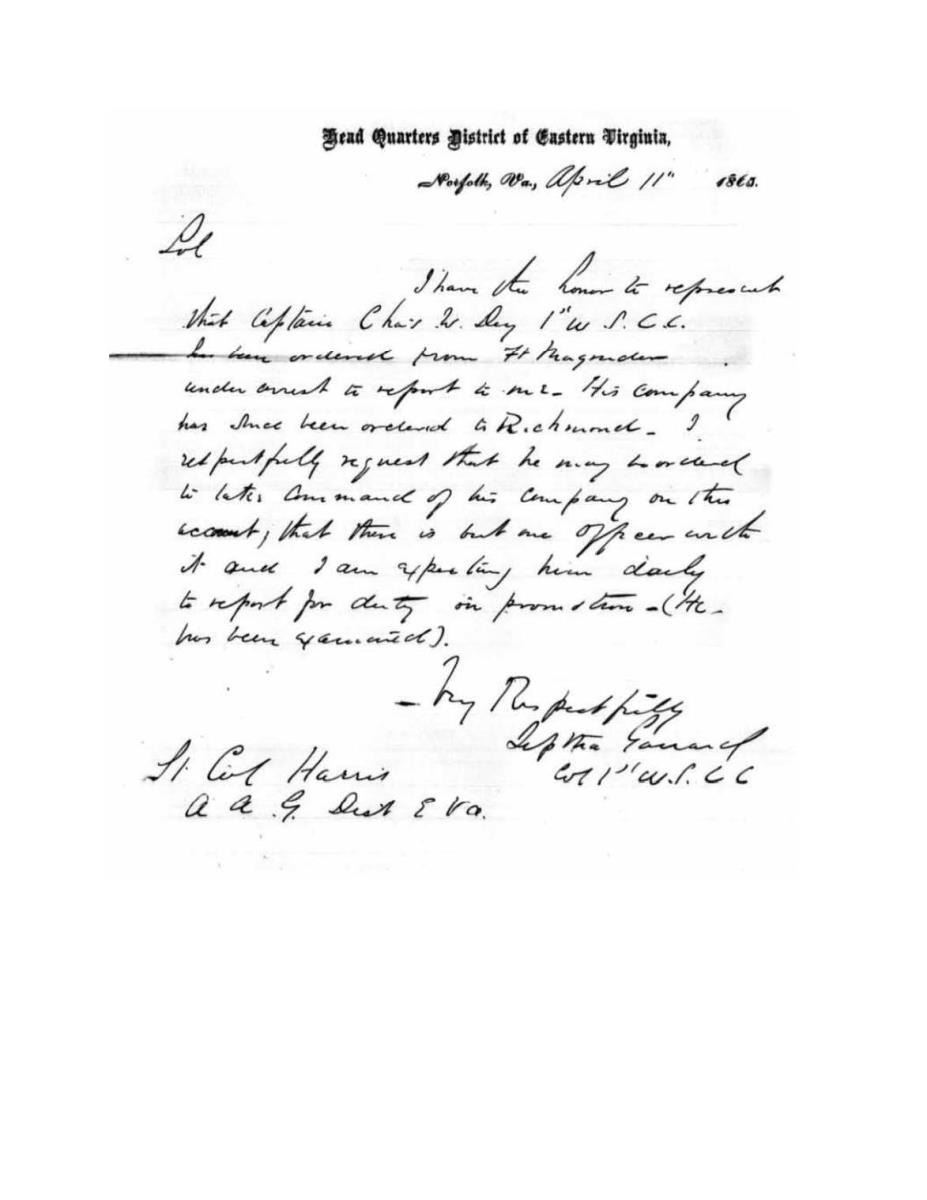 Head Quarters District of Eastern Virginia,
Norfolk, Va., April 11" 1865.
Col
I have the honor to represent
that Captain Cha's W. Dey 1" U. S. C. C.
has been ordered from Ft Magruder
under arrest to report to me - His company
has since been ordered to Richmond - I
respectfully request that he may be ordered
to take command of his company on this
account; that there is but one officer with
it and I am expecting him daily
to report for duty on promotion - (He
has been examined).
- Very Respectfully
Jeptha Garrard
Col 1st U. S. C C
Lt Col Harris
A A. G. Dist E Va.